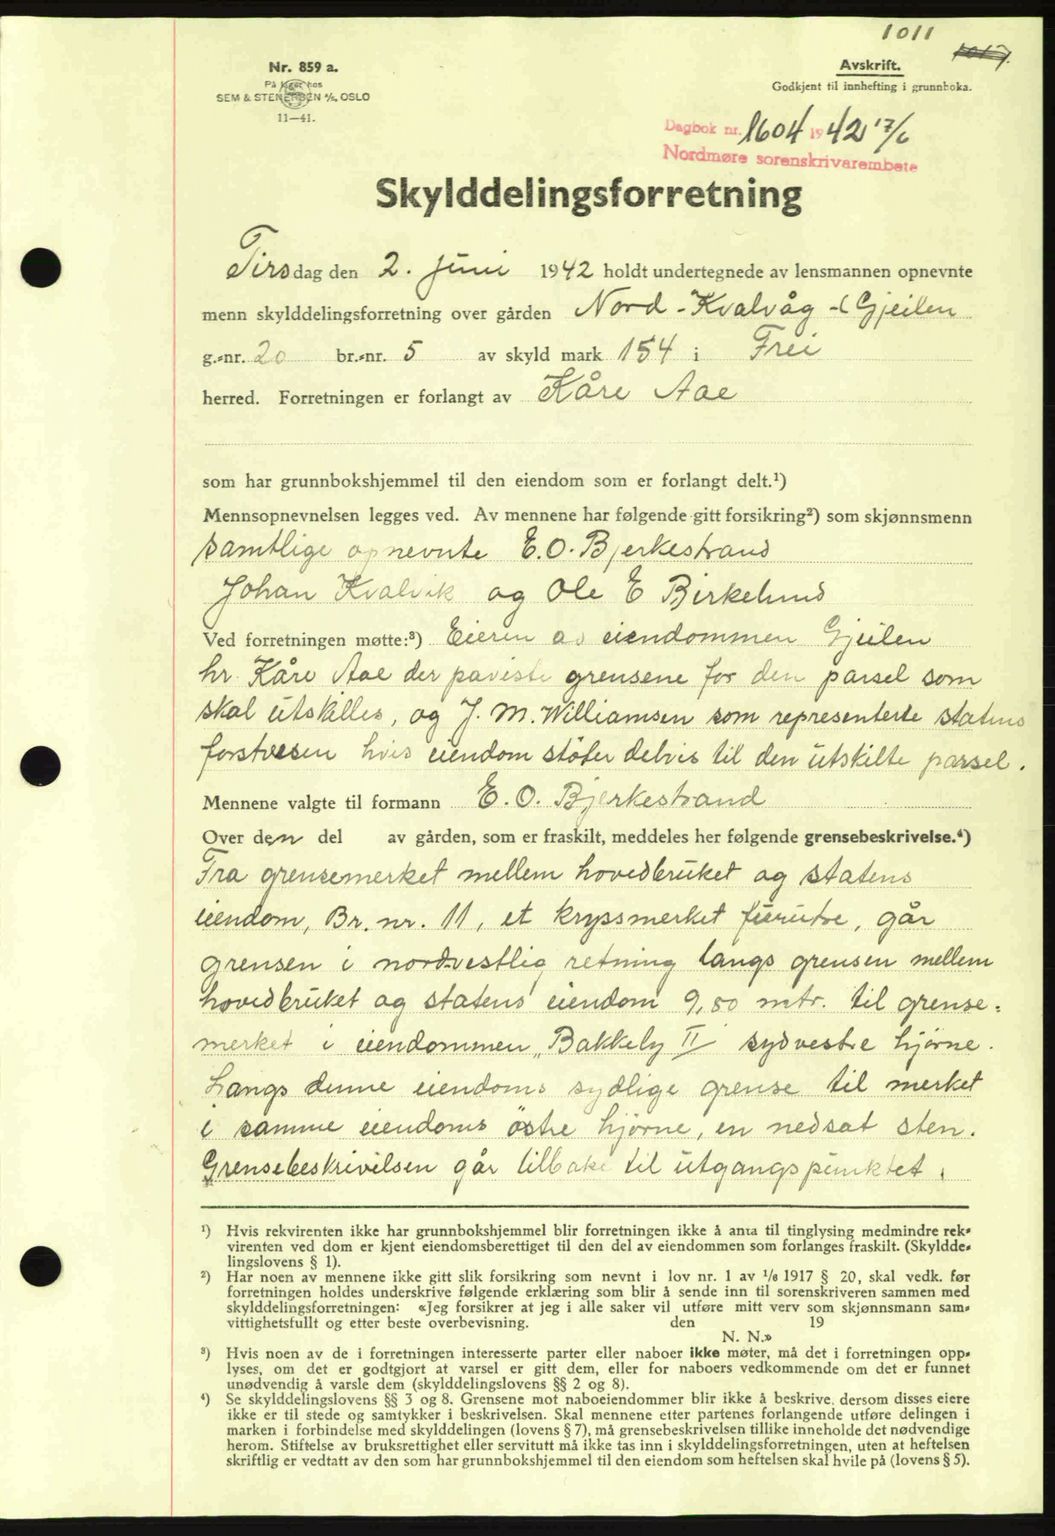 1011
1017.
Nr. 859 a.
På lager hos
SEM & STENERSEN A/S, OSLO
11—41.
Avskrift.
Godkjent til innhefting i grunnboka.
Dagbok nr. 1604 1942 17/6
Nordmøre sorenskrivarembete
Skylddelingsforretning
Tirsdag den 2. juni 1942 holdt undertegnede av lensmannen opnevnte
menn skylddelingsforretning over gården Nord-Kvalvåg - Gjeilen
g.-nr. 20 br.-nr. 5 av skyld mark 154 i Frei
herred. Forretningen er forlangt av Kåre Aae
som har grunnbokshjemmel til den eiendom som er forlangt delt.¹)
Mennsopnevnelsen legges ved. Av mennene har følgende gitt forsikring²) som skjønnsmenn
samtlige opnevnte E. O. Bjerkestrand
Johan Kvalvik og Ole E Birkelund
Ved forretningen møtte:³) Eieren av eiendommen Gjeilen
hr. Kåre Aae der påviste grensene for den parsel som
skal utskilles, og J. M. Williamsen som representerte statens
forstvesen hvis eiendom støter delvis til den utskilte parsel.
Mennene valgte til formann E. O. Bjerkestrand
Over den del av gården, som er fraskilt, meddeles her følgende grensebeskrivelse.⁴)
Fra grensemerket mellem hovedbruket og statens
eiendom, Br. nr. 11, et kryssmerket furutre, går
grensen i nordvestlig retning langs grensen mellem
hovedbruket og statens eiendom 9,80 mtr. til grense-
merket i eiendommen „Bakkely II" sydvestre hjørne.
Langs denne eiendoms sydlige grense til merket
i samme eiendoms østre hjørne, en nedsat sten.
Grensebeskrivelsen går tilbake til utgangspunktet.
¹) Hvis rekvirenten ikke har grunnbokshjemmel blir forretningen ikke å anta til tinglysing medmindre rek-
virenten ved dom er kjent eiendomsberettiget til den del av eiendommen som forlanges fraskilt. (Skyldde-
lingslovens § 1).
²) Har noen av mennene ikke gitt slik forsikring som nevnt i lov nr. 1 av 1/6 1917 § 20, skal vedk. før
forretningen holdes underskrive følgende erklæring som blir å sende inn til sorenskriveren sammen med
skylddelingsforretningen: «Jeg forsikrer at jeg i alle saker vil utføre mitt verv som skjønnsmann sam-
vittighetsfullt og etter beste overbevisning. den 19
N. N.»
³) Hvis noen av de i forretningen interesserte parter eller naboer ikke møter, må det i forretningen opp-
lyses, om det er godtgjort at varsel er gitt dem, eller for naboers vedkommende om det er funnet
unødvendig å varsle dem (skylddelingslovens §§ 2 og 8).
⁴) Se skylddelingslovens §§ 3 og 8. Grensene mot naboeiendommer blir ikke å beskrive, dersom disses eiere
ikke er til stede og samtykker i beskrivelsen. Skal mennene etter partenes forlangende utføre delingen i
marken i forbindelse med skylddelingen (lovens § 7), må grensebeskrivelsen tillike inneholde det nødvendige
herom. Stiftelse av bruksrettighet eller servitutt må ikke tas inn i skylddelingsforretningen, uten at heftelsen
skriftlig er vedtatt av den som har grunnbokshjemmel til den eiendom som heftelsen skal hvile på (lovens § 5).